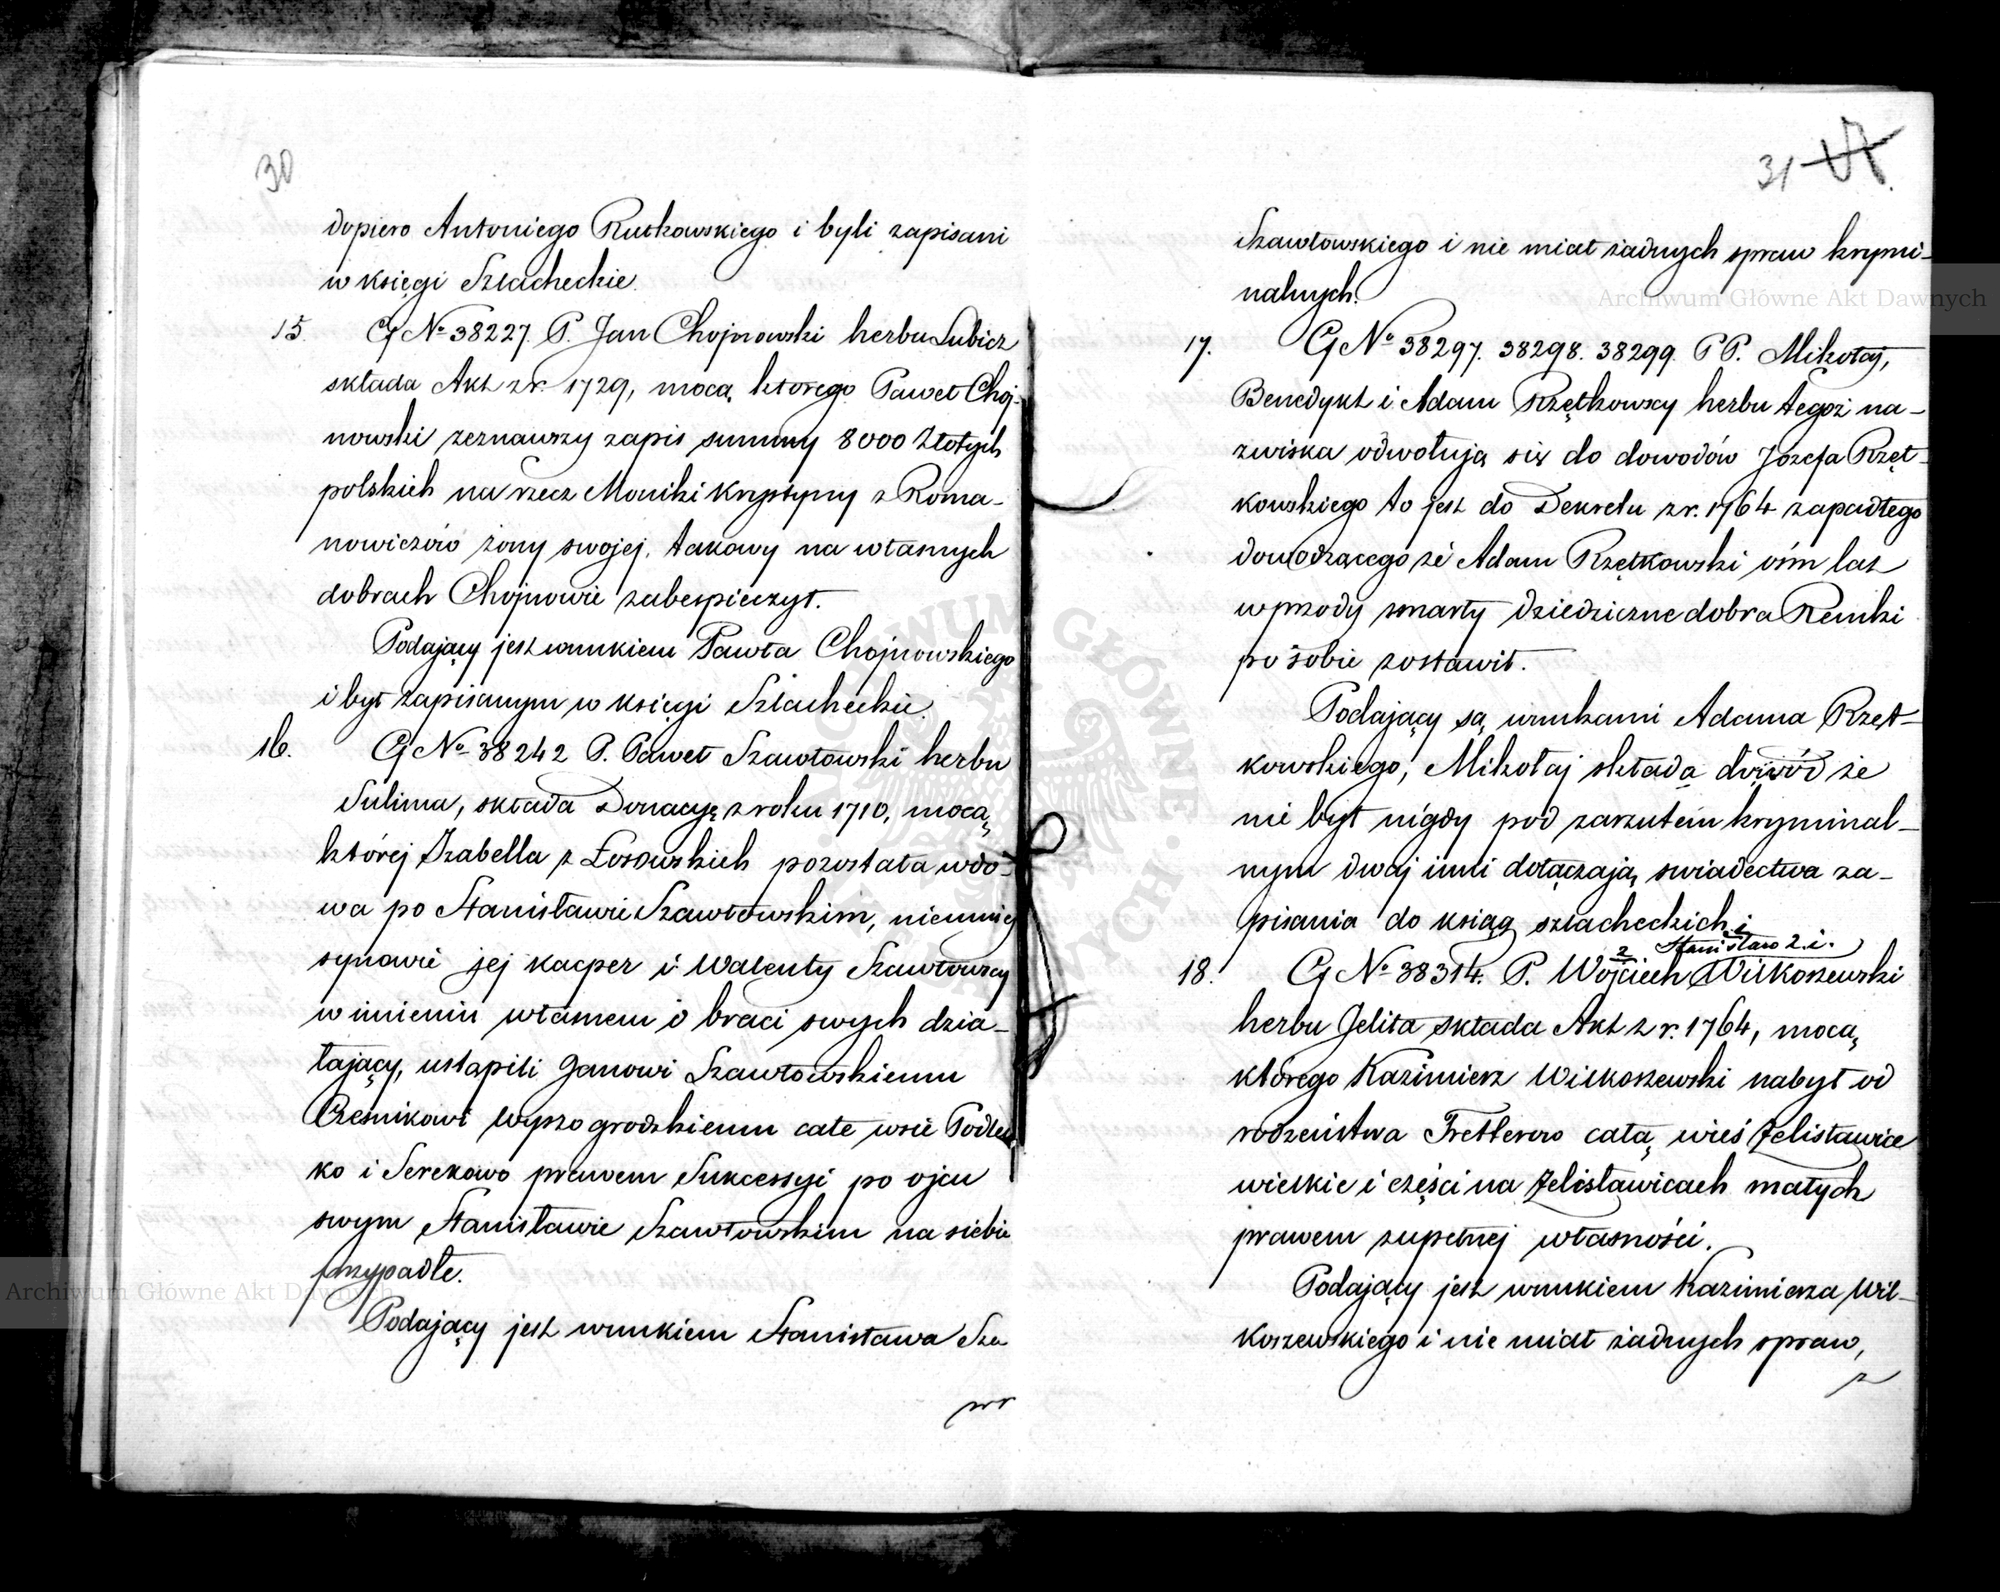 30
dopiero Antoniego Rutkowskiego i byli zapisani
w księgi Szlacheckie.
15. G No 38227. P. Jan Chojnowski herbu Lubicz
składa Akt z r. 1729, mocą ktorego Paweł Choj-
nowski zeznawszy zapis summy 8000 Złotych
polskich na rzecz Moniki Krystyny z Roma-
nowiczów żony swojej, takowy na własnych
dobrach Chojnowie zabespieczył.
Podający jest wnukiem Pawła Chojnowskiego
i był zapisanym w księgi Szlacheckie.
16. G No 38242 P. Paweł Szawłowski herbu
Sulima, składa Donacyę z roku 1710, mocą
której Izabella z Łosowskich pozostała wdo-
wa po Stanisławie Szawłowskim, niemniej
synowie jej Kacper i Walenty Szawłowscy
w imieniu własnem i braci swych dzia-
łający, ustąpili Janowi Szawłowskiemu
Cześnikowi Wyszogrodzkiemu całe wsie
ko i Serekowo prawem Sukcessyi po ojcu
swym Stanisławie Szawłowskim na siebie
przypadłe.
Podający jest wnukiem Stanisława Sza
31
Szawłowskiego i nie miał żadnych spraw krymi-
nalnych.
17. G No 38297. 38298. 38299. P P. Mikołaj,
Benedykt i Adam Rzętkowscy herbu tegoż na-
zwiska odwołują się do dowodów Józefa Rzęt-
kowskiego to jest do Dekretu z r. 1764 zapadłego
dowodzącego że Adam Rzętkowski ośm lat
wprzody zmarły dziedziczne dobra Remki
po sobie zostawił.
Podający są wnukami Adama Rzęt-
kowskiego, Mikołaj składa dowód że
nie był nigdy pod zarzutem kryminal-
nym dwaj inni dołączają swiadectwa za-
pisania do ksiąg szlacheckich.
i Stanisław 2. i.
18. G No 38314. P. Wojciech 2 Wilkoszewski
herbu Jelita składa Akt z r. 1764, mocą
którego Kazimierz Wilkoszewski nabył od
rodzeństwa Tretterow całą wieś Zelisławice
wielkie i części na Zelisławicach małych
prawem zupełnej własności.
Podający jest wnukiem Kazimierza Wil-
koszewskiego i nie miał żadnych spraw,